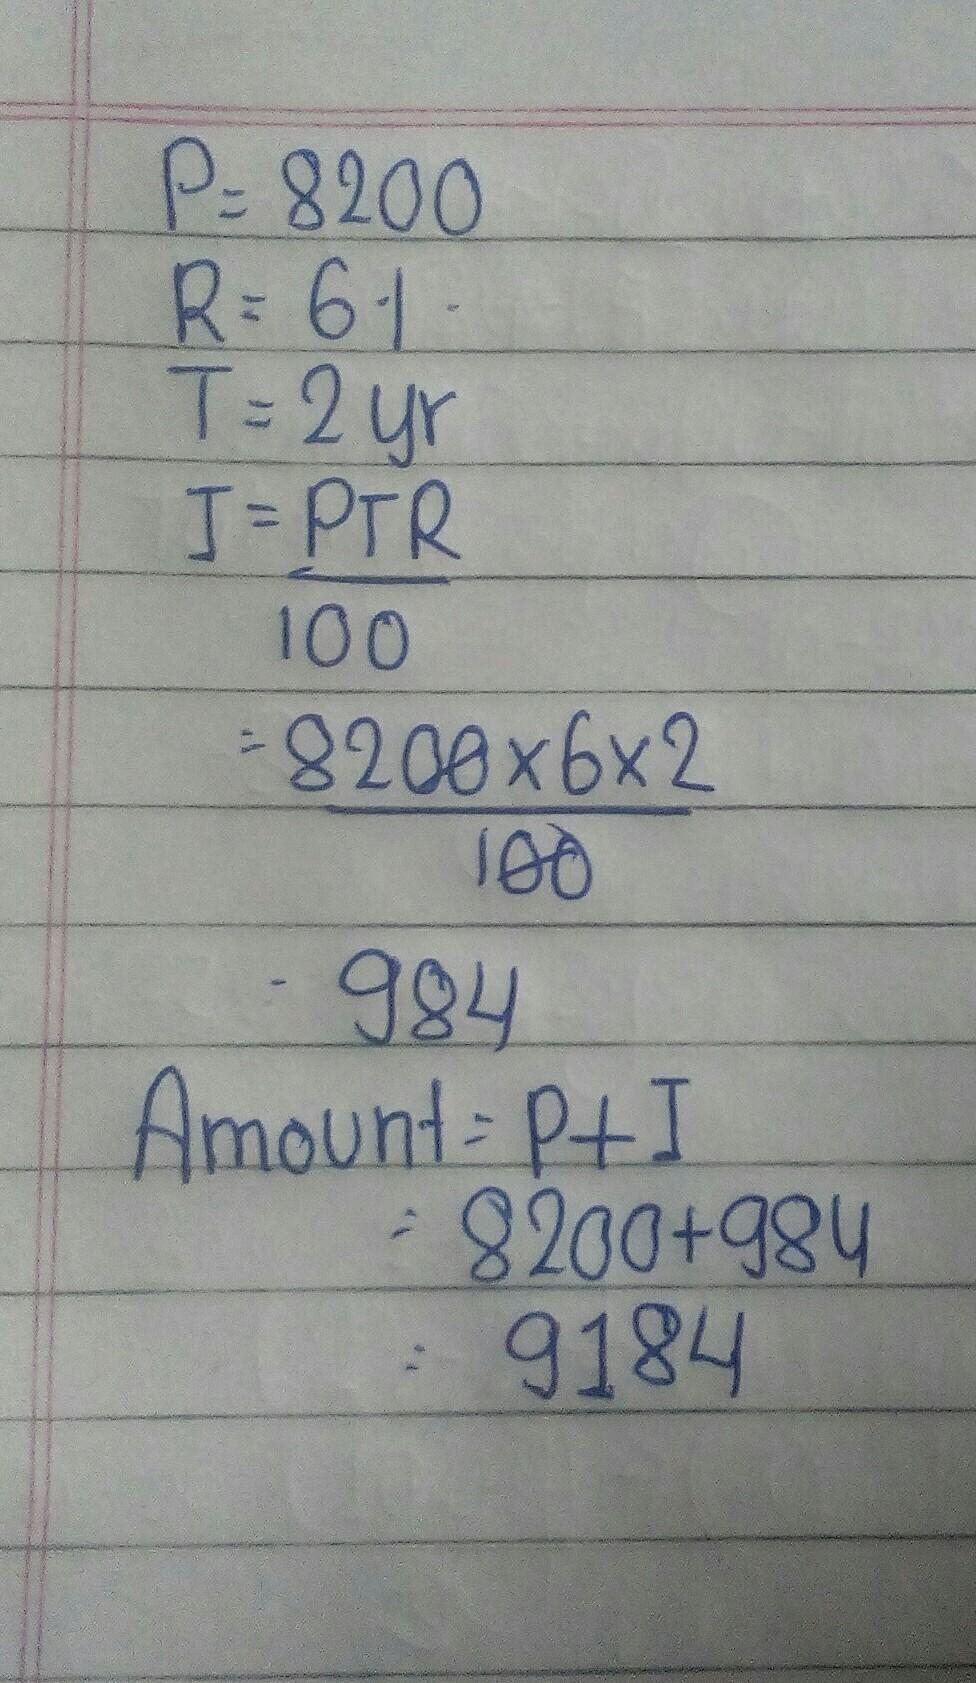 P= 8200
R= 6%
T= 2 yr
I = PTR
100
= 8200x6x2
100
= 984
Amount = P+I
= 8200+984
= 9184